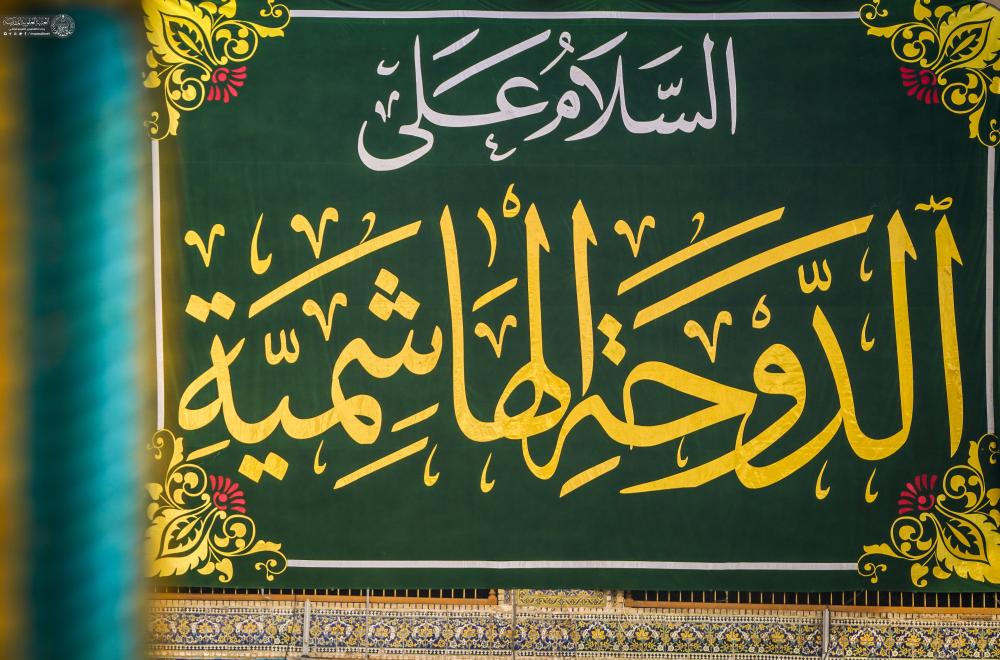 السَّلَامُ عَلَى
ٱلدَّوْحَةِ الْهَاشِمِيَّةِ